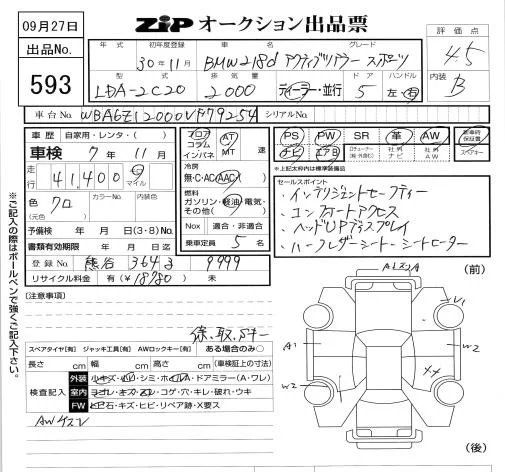 09月27日
ZIP オークション出品票
出品No.
593
年式 初年度登録 車名 グレード
30年11月 BMW218d アクティブツアラー スポーツ
評価点
4.5
内装
B
型式 排気量 ドア ハンドル
LDA-2C20 2000 ディーラー・並行 5 左・右
車台No. WBA6Z12000V 79254 シリアルNo.
車歴 自家用・レンタ・( )
車検 7年 11月
走行 41,400 km マイル
色 クロ カラーNo. 内装色
(元色)
予備検 年 月 日(3・8)No.
書類有効期限 年 月 日迄
登録No. 熊谷 364 る 9999
リサイクル料金 有(¥18780) 未
フロア AT
コラム
インパネ MT 速
冷房
無・C・AC・AAC
燃料
ガソリン・軽油・電気・
その他( )
Nox 適合・非適合
乗車定員 5 名
PS PW SR 革 AW 新車時保証書
ナビ エアB ロールーナー(軽・外含む) 社外ナビ 社外AW スペアキー
※上記太枠内は標準装備品
セールスポイント
・インテリジェントセーフティー
・コンフォートアクセス
・ヘッドUPディスプレイ
・ハーフレザーシート シートヒーター
※ご記入の際はボールペンで強くご記入下さい。
[注意事項]
保、取、Sキー
スペアタイヤ[有] ジャッキ工具[有] AWロックキー[有] ある場合のみ○
長さ cm 幅 cm 高さ cm (車検証上の寸法)
検査記入
外装 小キズ・小凹・シミ・ホイルA・ドアミラー(A・ワレ)
室内 ヨゴレ・キズ・スレ・コゲ・穴・キレ・破れ・ウキ
FW 飛石・キズ・ヒビ・リペア跡・X要ス
AWケスレ
(前)
A レスンA
V1
A1
W2
W2
××
(後)